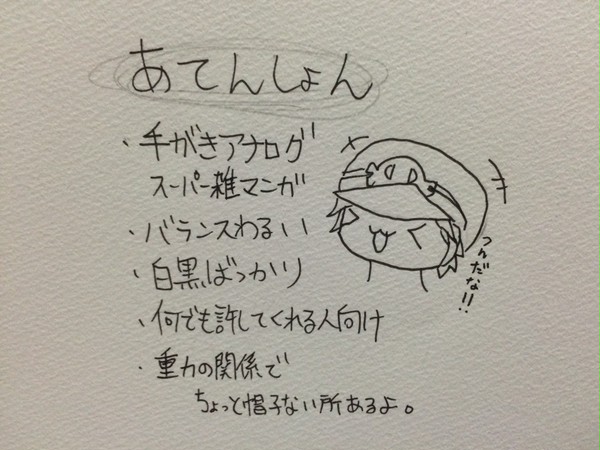 あてんしょん
・手がきアナログ
スーパー雑マンガ
・バランスわるい
・白黒ばっかり
・何でも許してくれる人向け
・重力の関係で
ちょっと帽子ない所あるよ。
つんだな!!